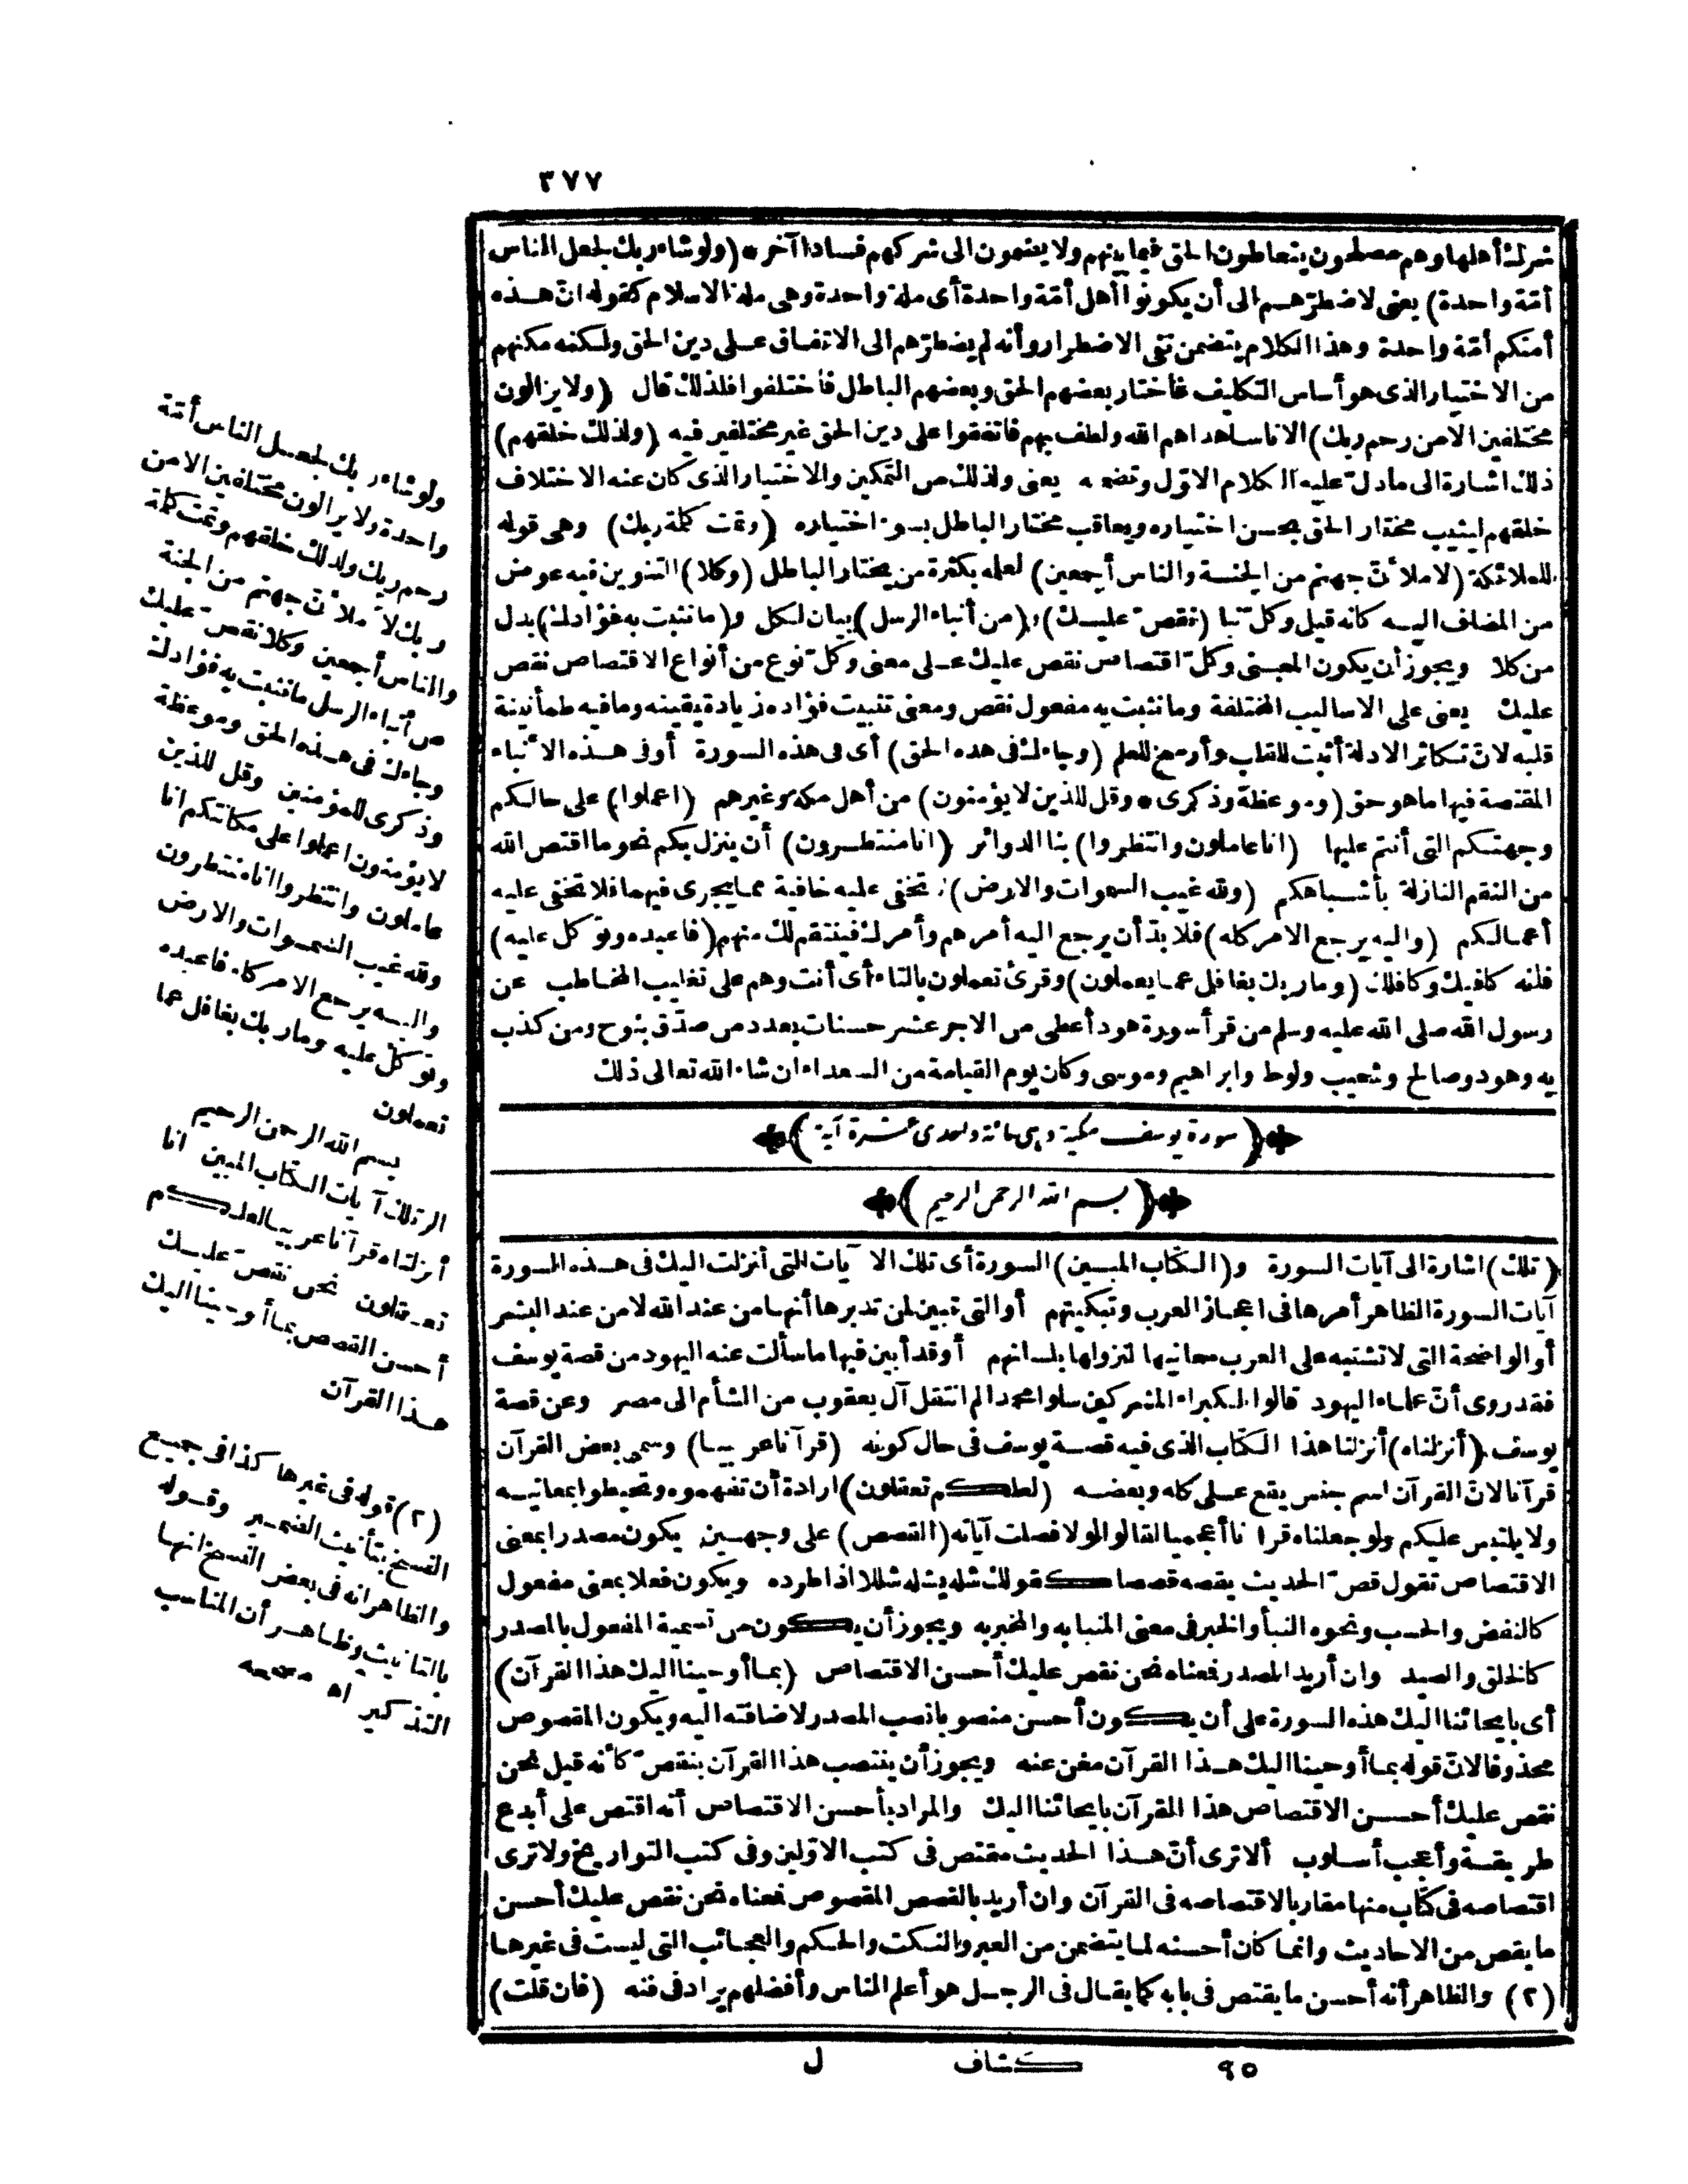 ٣٧٧
شرك أهلها وهم مصلحون يتعاطون الحق فيما بينهم ولا يضمون الى شركهم فسادا آخر * (ولو شاء ربك لجعل الناس
أمّة واحدة) يعنى لاضطرّهم الى أن يكونوا أهل أمّة واحدة أى ملة واحدة وهى ملة الاسلام كقوله انّ هذه
أمتكم أمّة واحدة وهذا الكلام يتضمن نفى الاضطرار وأنه لم يضطرّهم الى الاتفاق على دين الحق ولكنه مكنهم
من الاختيار الذى هو أساس التكليف فاختار بعضهم الحق وبعضهم الباطل فاختلفوا فلذلك قال (ولا يزالون
مختلفين الا من رحم ربك) الا ناسا هداهم الله ولطف بهم فاتفقوا على دين الحق غير مختلفين فيه (ولذلك خلقهم)
ذلك اشارة الى ما دلّ عليه الكلام الاوّل وتضمنه يعنى ولذلك من التمكين والاختيار الذى كان عنه الاختلاف
خلقهم ليثيب مختار الحق بحسن اختياره ويعاقب مختار الباطل بسوء اختياره (وتمت كلمة ربك) وهى قوله
للملائكة (لاملأنّ جهنم من الجنة والناس أجمعين) لعلمه بكثرة من يختار الباطل (وكلا) التنوين فيه عوض
من المضاف اليه كانه قيل وكلّ نبا (نقصّ عليك) و(من أنباء الرسل) بيان لكل و(ما نثبت به فؤادك) بدل
من كلا ويجوز أن يكون المعنى وكلّ اقتصاص نقص عليك على معنى وكلّ نوع من أنواع الاقتصاص نقص
عليك يعنى على الاساليب المختلفة وما نثبت به مفعول نقص ومعنى تثبيت فؤاده زيادة يقينه وما فيه طمأنينة
قلبه لانّ تكاثر الادلة أثبت للقلب وأرسخ للعلم (وجاءك فى هذه الحق) أى فى هذه السورة أو فى هذه الانباء
المقتصة فيها ما هو حق (وموعظة وذكرى * وقل للذين لا يؤمنون) من أهل مكة وغيرهم (اعملوا) على حالكم
وجهتكم التى أنتم عليها (انا عاملون وانتظروا) بنا الدوائر (انا منتظرون) أن ينزل بكم نحو ما اقتص الله
من النقم النازلة بأشباهكم (ولله غيب السموات والارض) لا تخفى عليه خافية مما يجرى فيهما فلا تخفى عليه
أعمالكم (واليه يرجع الامر كله) فلا بدّ أن يرجع اليه أمرهم وأمرك فينتقم لك منهم (فاعبده وتوكل عليه)
فانه كافيك وكافلك (وما ربك بغافل عما يعملون) وقرئ تعملون بالتاء أى أنت وهم على تغليب المخاطب عن
رسول الله صلى الله عليه وسلم من قرأ سورة هود أعطى من الاجر عشر حسنات بعدد من صدّق بنوح ومن كذب
به وهود وصالح وشعيب ولوط وابراهيم وموسى وكان يوم القيامة من السعداء ان شاء الله تعالى ذلك
(سورة يوسف مكية وهى مائة واحدى عشرة آية)
(بسم الله الرحمن الرحيم)
(تلك) اشارة الى آيات السورة و(الكتاب المبين) السورة أى تلك الآيات التى أنزلت اليك فى هذه السورة
آيات السورة الظاهر أمرها فى اعجاز العرب وتبكيتهم أو التى تبين لمن تدبرها أنها من عند الله لا من عند البشر
أو الواضحة التى لا تشتبه على العرب معانيها لنزولها بلسانهم أو قد أبين فيها ما سألت عنه اليهود من قصة يوسف
فقد روى أنّ علماء اليهود قالوا لكبراء المشركين سلوا محمدا لم انتقل آل يعقوب من الشأم الى مصر وعن قصة
يوسف (أنزلناه) أنزلنا هذا الكتاب الذى فيه قصة يوسف فى حال كونه (قرآنا عربيا) وسمى بعض القرآن
قرآنا لانّ القرآن اسم جنس يقع على كله وبعضه (لعلكم تعقلون) ارادة أن تفهموه وتحيطوا بمعانيه
ولا يلتبس عليكم ولو جعلناه قرآنا أعجميا لقالوا لولا فصلت آياته (القصص) على وجهين يكون مصدرا بمعنى
الاقتصاص تقول قصّ الحديث يقصه قصصا كقولك شله يشله شللا اذا طرده ويكون فعلا بمعنى مفعول
كالنفض والحسب ونحوه النبأ والخبر فى معنى المنبا به والمخبر به ويجوز أن يكون من تسمية المفعول بالمصدر
كالخلق والصيد وان أريد المصدر فمعناه نحن نقص عليك أحسن الاقتصاص (بما أوحينا اليك هذا القرآن)
أى بايحائنا اليك هذه السورة على أن يكون أحسن منصوبا نصب المصدر لاضافته اليه ويكون المقصوص
محذوفا لانّ قوله بما أوحينا اليك هذا القرآن مغن عنه ويجوز أن ينتصب هذا القرآن بنقصّ كأنه قيل نحن
نقص عليك أحسن الاقتصاص هذا القرآن بايحائنا اليك والمراد بأحسن الاقتصاص أنه اقتص على أبدع
طريقة وأعجب أسلوب ألا ترى أنّ هذا الحديث مقتص فى كتب الاوّلين وفى كتب التواريخ ولا ترى
اقتصاصه فى كتاب منها مقاربا لاقتصاصه فى القرآن وان أريد بالقصص المقصوص فمعناه نحن نقص عليك أحسن
ما يقص من الاحاديث وانما كان أحسنه لما يتضمن من العبر والنكت والحكم والعجائب التى ليست فى غيرها
(٢) والظاهر أنه أحسن ما يقتص فى بابه كما يقال فى الرجل هو أعلم الناس وأفضلهم يراد فى فنه (فان قلت)
ولو شاء ربك لجعل الناس أمّة
واحدة ولا يزالون مختلفين الا من
رحم ربك ولذلك خلقهم وتمت كلمة
ربك لاَملأنّ جهنم من الجنة
والناس أجمعين وكلا نقصّ عليك
من أنباء الرسل ما نثبت به فؤادك
وجاءك فى هذه الحق وموعظة
وذكرى للمؤمنين وقل للذين
لا يؤمنون اعملوا على مكانتكم انا
عاملون وانتظروا انا منتظرون
ولله غيب السموات والارض
واليه يرجع الامر كله فاعبده
وتوكل عليه وما ربك بغافل عما
تعملون
بسم الله الرحمن الرحيم
الر تلك آيات الكتاب المبين انا
أنزلناه قرآنا عربيا لعلكم
تعقلون نحن نقصّ عليك
أحسن القصص بما أوحينا اليك
هذا القرآن
(٢) قوله فى غيرها كذا فى جميع
النسخ بتأنيث الضمير وقوله
والظاهر انه فى بعض النسخ انها
بالتأنيث وظاهر أن المناسب
التذكير اه مصححه
٩٥ كشاف ل